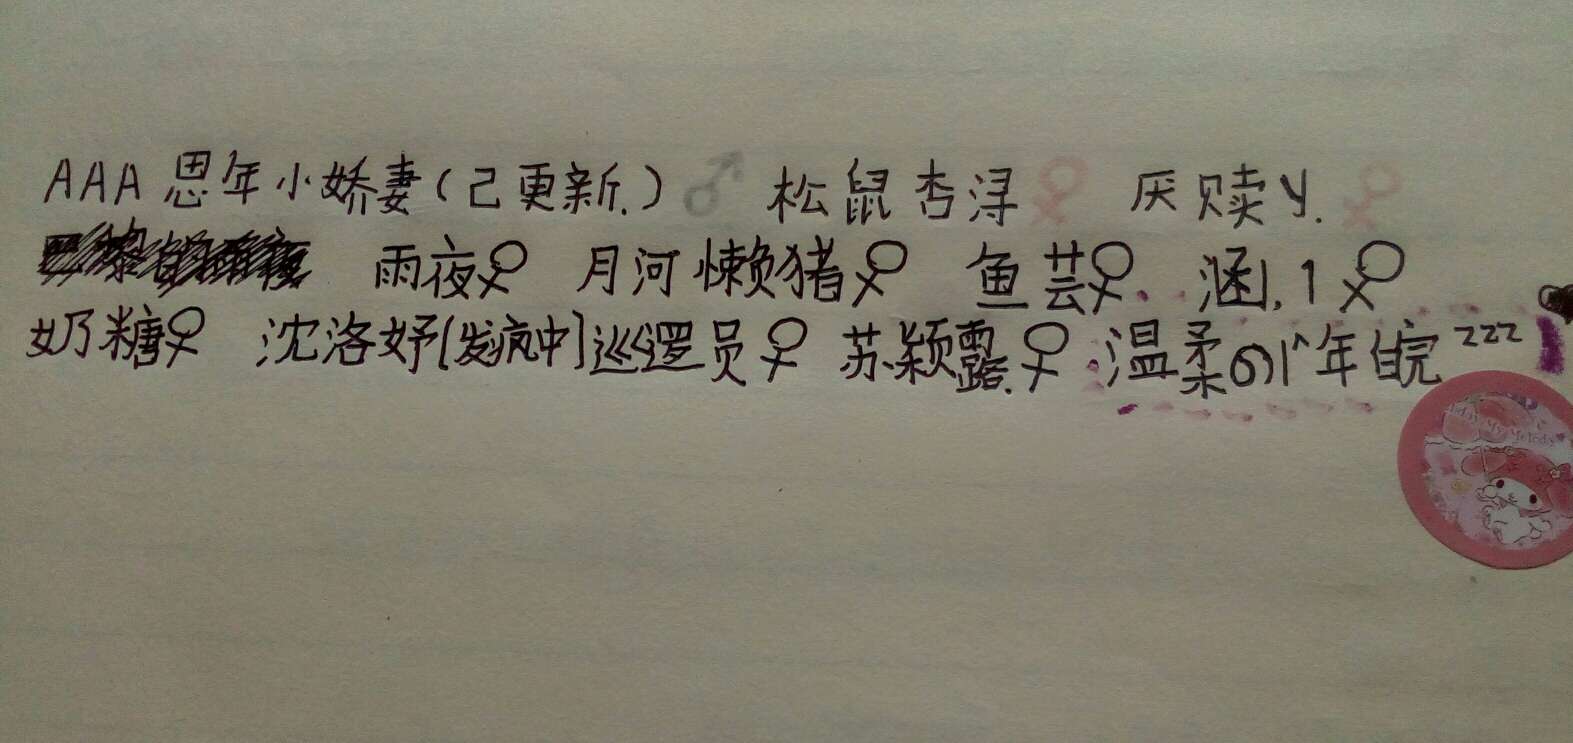 AAA思年小娇妻(己更新.)♂ 松鼠杏浔♀ 厌赎y.♀
雨夜♀ 月河懒猪♀ 鱼芸♀ 涵1,1♀
奶糖♀ 沈洛妤[发疯中]巡逻员♀ 苏颖露.♀ 温柔の小年皖zzz
My Melody